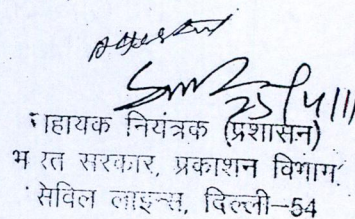 25/4/11
हायक नियंत्रक (प्रशासन)
भ रत सरकार, प्रकाशन विभाग
सिविल लाइन्स, दिल्ली-54